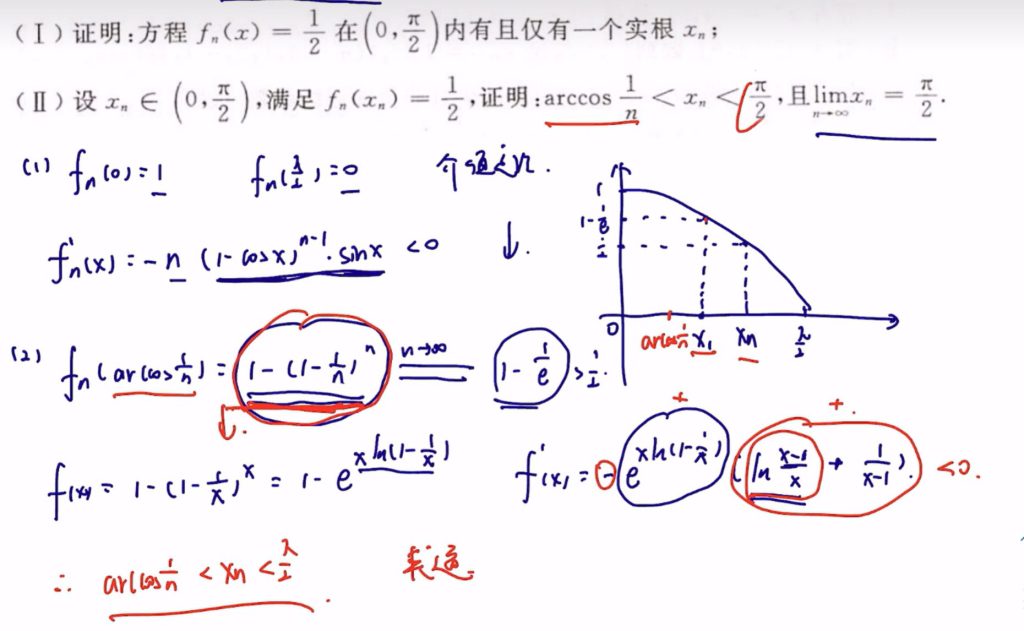 (Ⅰ)证明:方程 fₙ(x) = 1/2 在(0, π/2)内有且仅有一个实根 xₙ;
(Ⅱ)设 xₙ ∈ (0, π/2),满足 fₙ(xₙ) = 1/2,证明:arccos 1/n < xₙ < π/2,且 lim_{n→∞} xₙ = π/2.
(1) fₙ(0)=1 fₙ(π/2)=0
fₙ'(x) = -n (1-cosx)ⁿ⁻¹·sinx <0 ↓.
1
1-1/e
1/2
0 arccos 1/n x₁ xₙ π/2
(2) fₙ(arccos 1/n) = 1-(1-1/n)ⁿ n→∞ 1-1/e > 1/2.
↓.
f(x) = 1-(1-1/x)ˣ = 1-e^{x ln(1-1/x)} f'(x) = -e^{x ln(1-1/x)} (ln (x-1)/x + 1/(x-1)) <0.
+ +.
∴ arccos 1/n < xₙ < π/2.